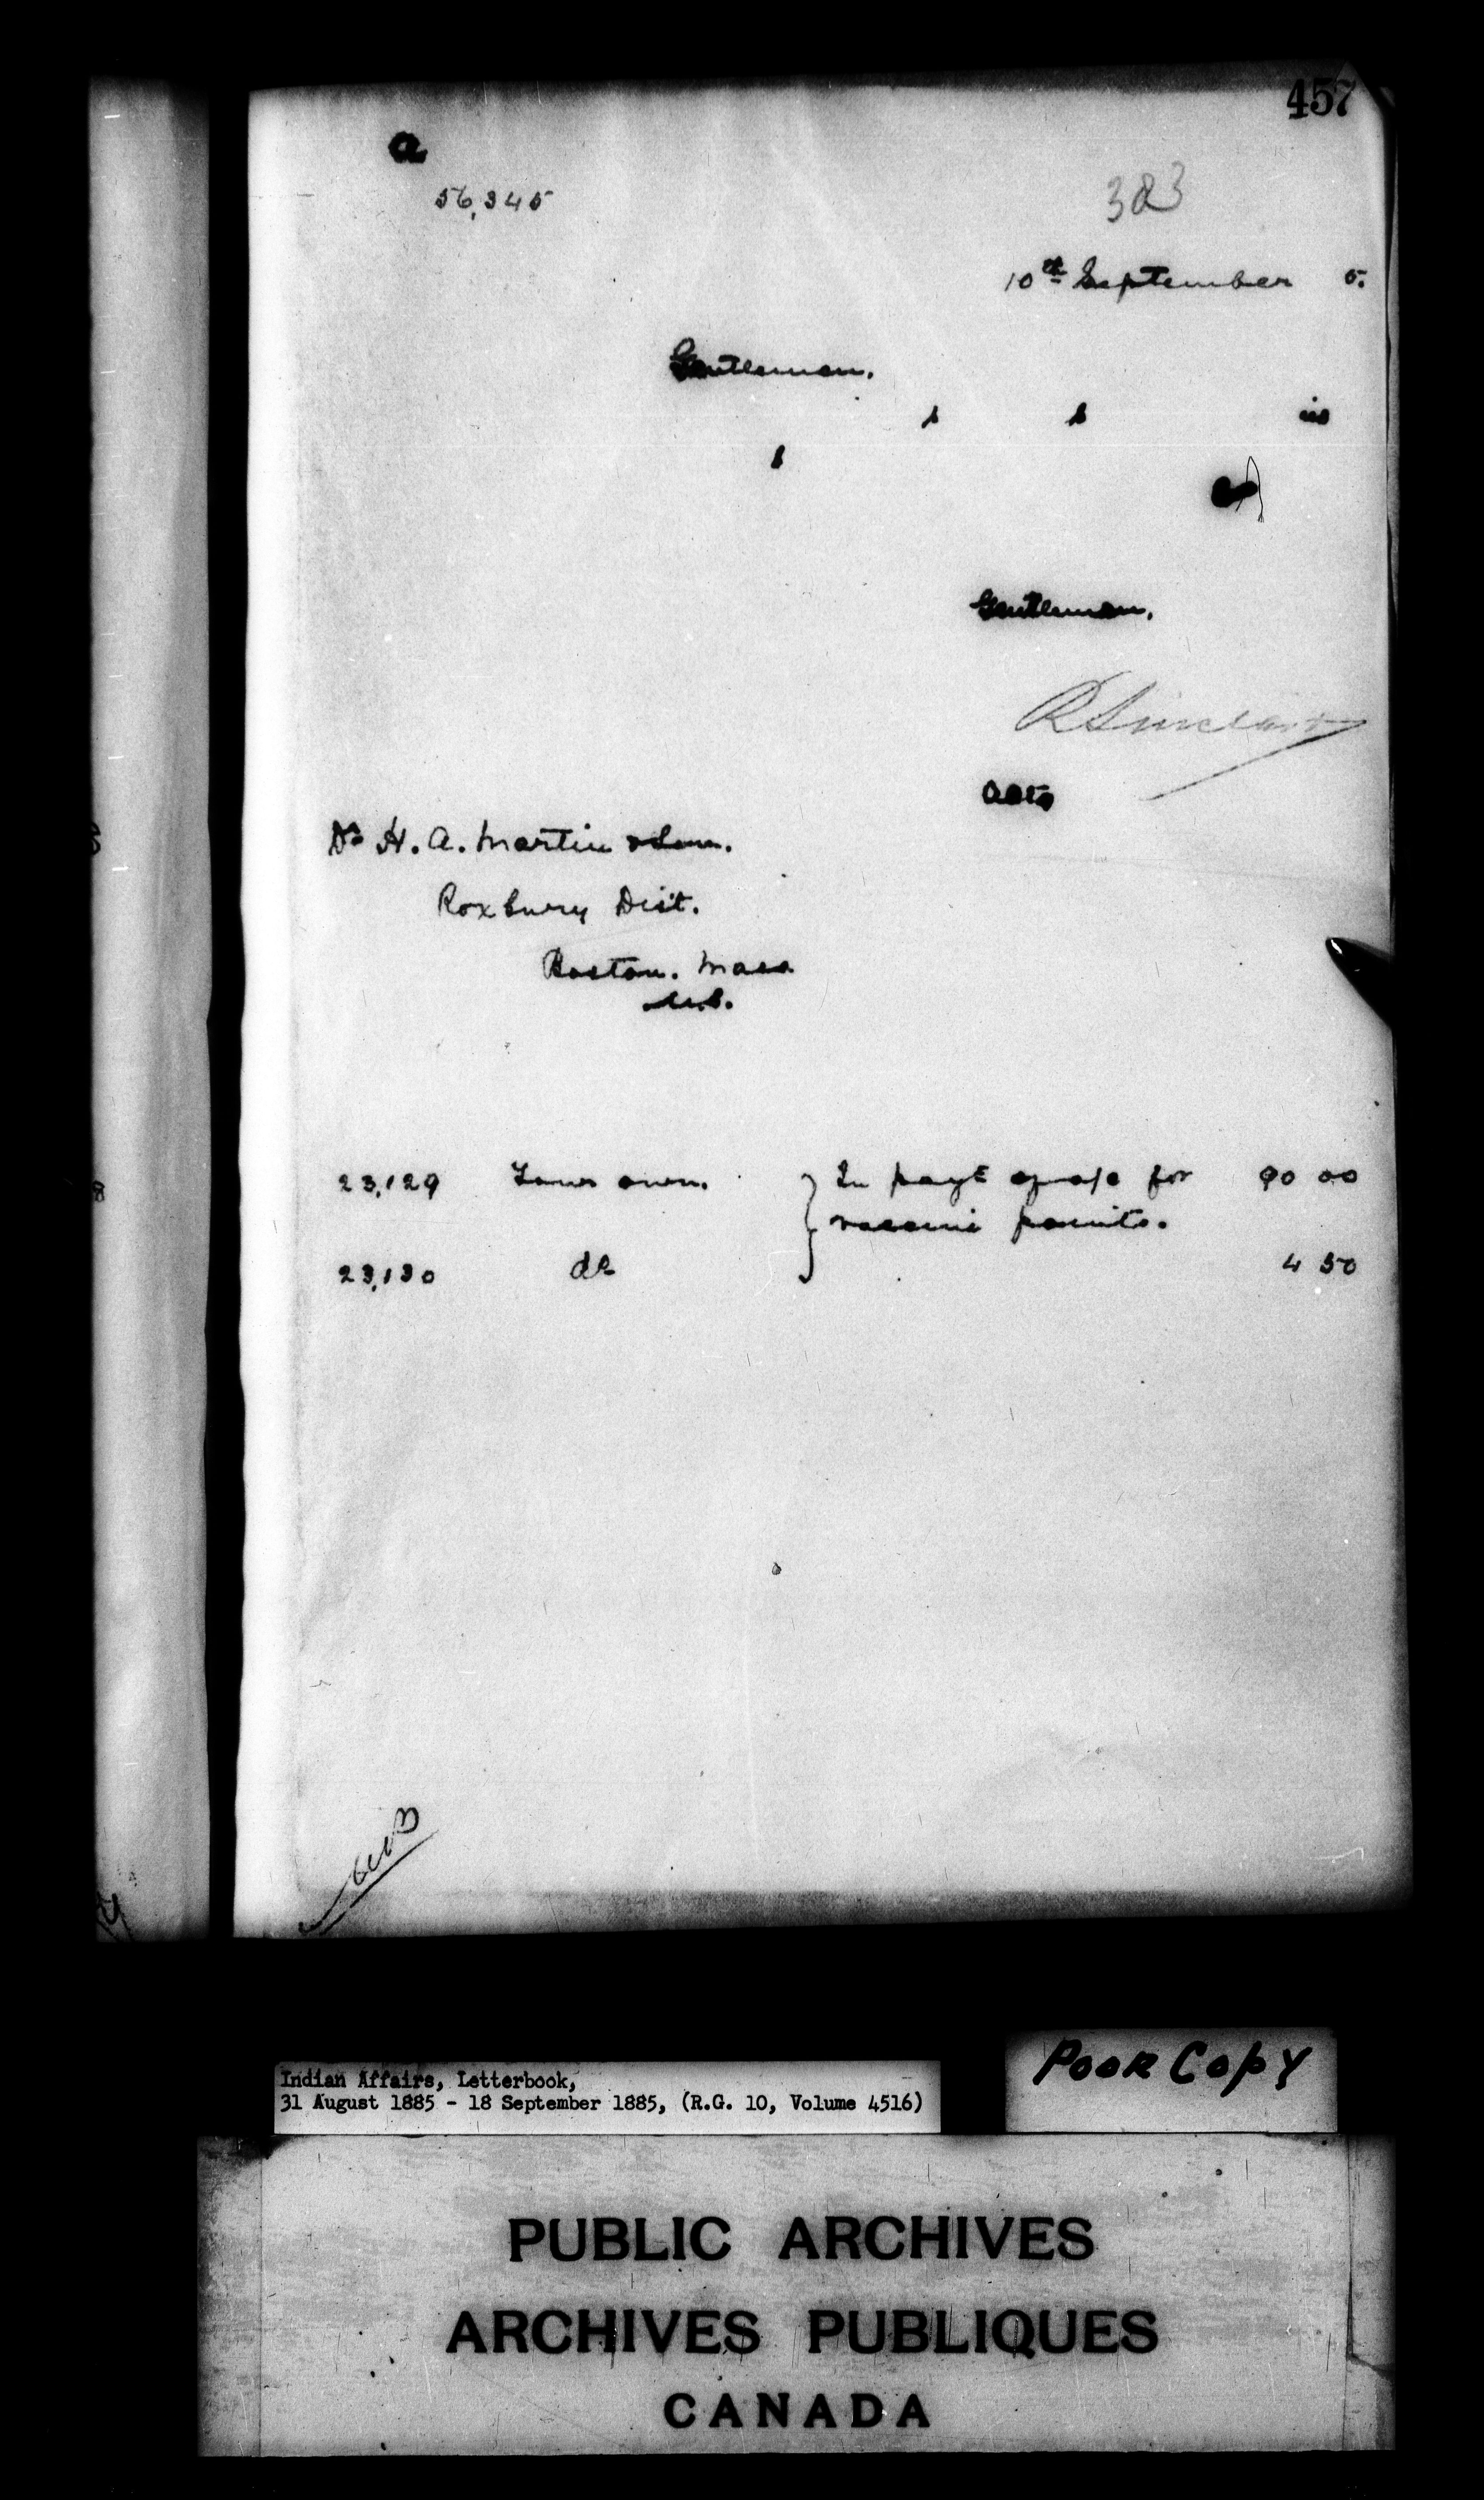 457
a
56,345
383
10th September 5.
Gentlemen.
s s is
s
Gentlemen.
R Sinclair
Dr H. A. Martin & Son.
Roxbury Dist.
Boston. Mass
U.S.
23,129 Your own. In payt of a/c for 90 00
vaccine points.
23,130 do 4 50
Indian Affairs, Letterbook,
31 August 1885 - 18 September 1885, (R.G. 10, Volume 4516)
Poor Copy
PUBLIC ARCHIVES
ARCHIVES PUBLIQUES
CANADA